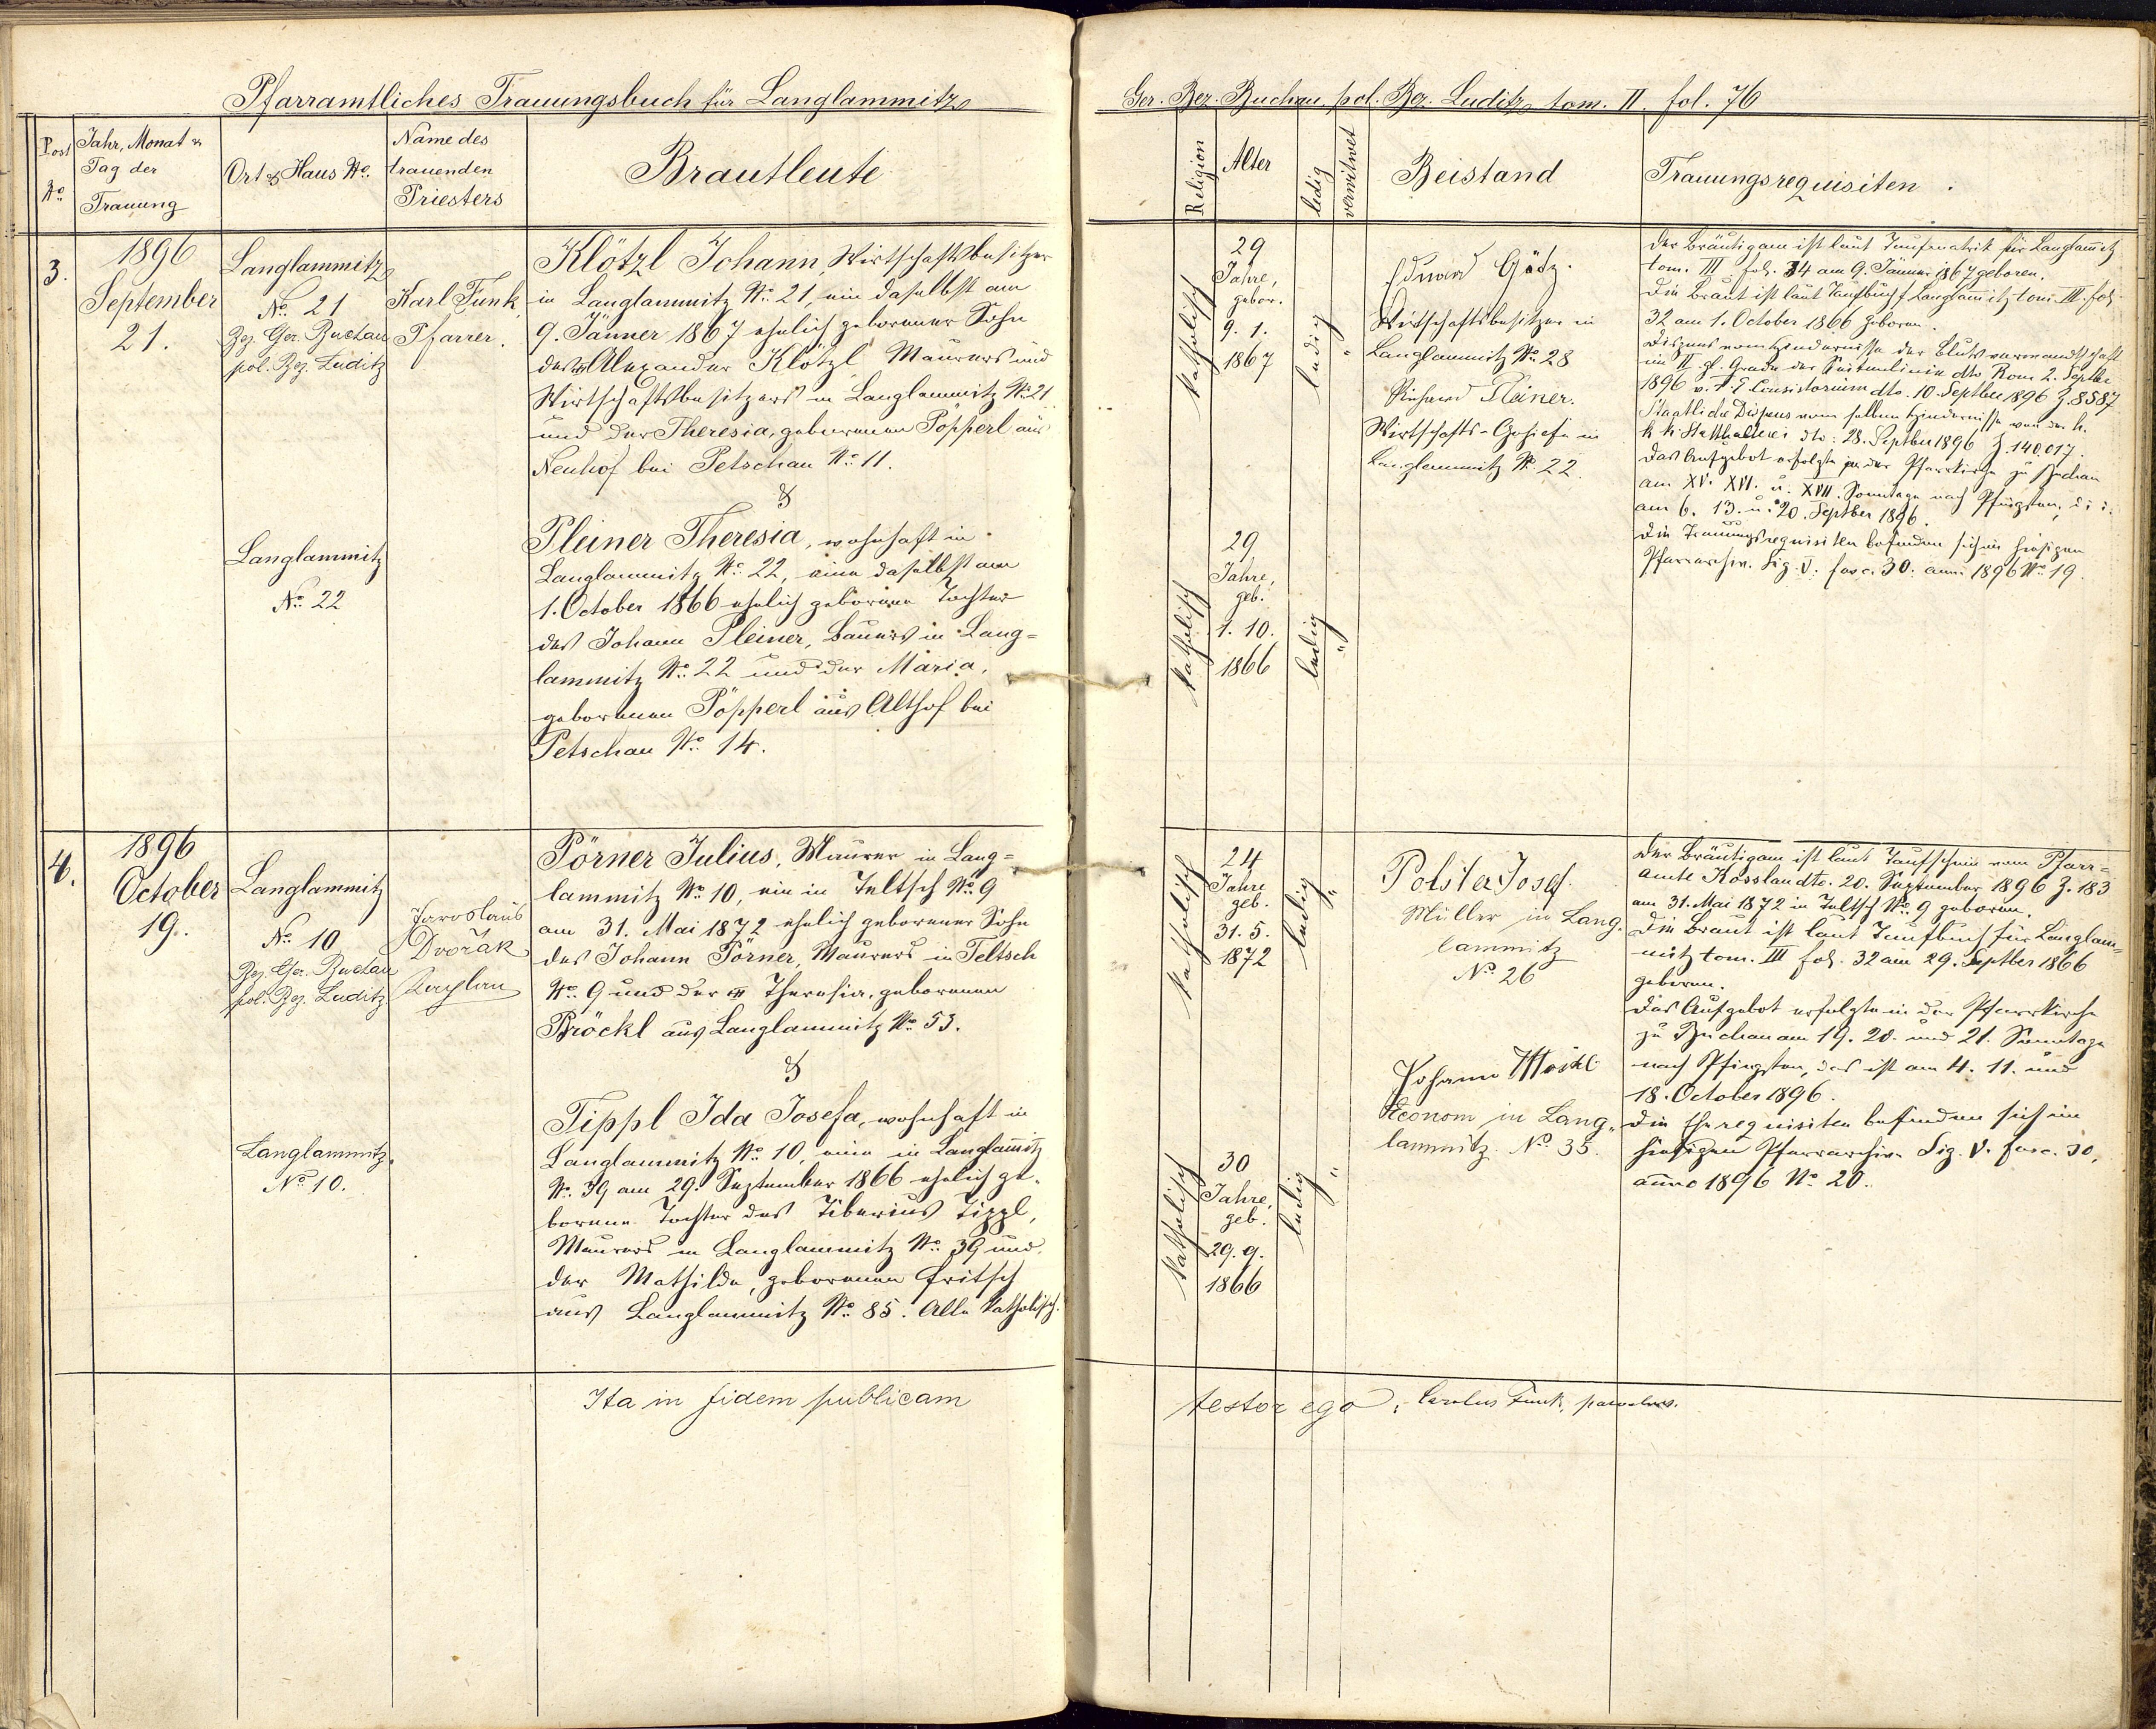 Pfarramtliches Trauungsbuch für Langlammitz
Post No
Jahr, Monat &
Tag der
Trauung
Ort & Haus No.
Name des
trauenden
Priesters
Brautleute
3.
1896
September
21.
Langlammitz
No. 21
Bez. Ger. Buchau
pol. Bez. Luditz
Karl Funk,
Pfarrer.
Klötzl Johann, Wirtschaftsbesitzer
in Langlammitz No. 21, ein daselbst am
9. Jänner 1867 ehelich geborener Sohn
des Alexander Klötzl, Maurers und
Wirtschaftsbesitzers in Langlammitz No. 21
und der Theresia, geborenen Pöpperl aus
Neuhof bei Petschau No. 11.
&
Langlammitz
No. 22
Pleiner Theresia, wohnhaft in
Langlammitz No. 22, eine daselbst am
1. October 1866 ehelich geborene Tochter
des Johann Pleiner, Bauers in Lang=
lammitz No. 22 und der Maria,
geborenen Pöpperl aus Althof bei
Petschau No. 14.
4.
1896
October
19.
Langlammitz
No. 10
Bez. Ger. Buchau
pol. Bez. Luditz
Jaroslaus
Dvořák
Kaplan
Pörner Julius, Maurer in Lang=
lammitz No. 10, ein in Teltsch No. 9
am 31. Mai 1872 ehelich geborener Sohn
des Johann Pörner, Maurers in Teltsch
No. 9 und der Theresia, geborenen
Pröckl aus Langlammitz No. 53.
&
Langlammitz
No. 10.
Tippl Ida Josefa, wohnhaft in
Langlammitz No. 10, eine in Langlam̅itz
No. 39 am 29. September 1866 ehelich ge=
borene Tochter des Tiberius Tippl,
Maurers in Langlammitz No. 39 und
der Mathilde, geborenen Fritsch
aus Langlammitz No. 85. Alle katholisch.
Ita in fidem publicam
Ger. Bez. Buchau pol. Bez. Luditz tom. II. fol. 76
Religion
Alter
ledig
verwitwet
Beistand
Trauungsrequisiten.
katholisch
29
Jahre,
gebor.
9. 1.
1867
ledig
"
Eduard Götz.
Wirtschaftsbesitzer in
Langlammitz No. 28
Richard Pleiner.
Wirtschafts-Gehilfe in
Langlammitz No. 22.
Der Bräutigam ist laut Taufmatrik für Langlam̅itz
tom. III fol. 34 am 9. Jänner 1867 geboren.
Die Braut ist laut Taufbuch f. Langlam̅itz tom. III. fol.
32 am 1. October 1866 geboren.
Dispens vom Hindernisse der Blutsverwandtschaft
im II. gl. Grade der Seitenlinie dto Rom 2. Septbr
1896 v. f. e. Consistorium dto. 10. Septber 1896 Z. 8587
Staatliche Dispens vom selben Hindernisse von der h.
k. k. Statthalterei dto: 28. Septber 1896 Z. 140,017.
Das Aufgebot erfolgte in der Pfarrkirche zu Buchau
am XV. XVI. u. XVII. Sonntage nach Pfingsten, d. i.
am 6. 13. u. 20. Septber 1896.
Die Trauungsrequisiten befinden sich im hiesigen
Pfarrarchiv. Sig. V. fasc. 30. anni 1896 No. 19.
katholisch
29
Jahre,
geb.
1. 10.
1866
ledig
"
katholisch
24
Jahre
geb.
31. 5.
1872
ledig
"
Polster Josef.
Müller in Lang.
lammitz
No. 26
Der Bräutigam ist laut Taufschein vom Pfarr=
amte Kosslau dto. 20. September 1896 Z. 183
am 31. Mai 1872 in Teltsch No. 9 geboren.
Die Braut ist laut Taufbuch für Langlam=
mitz tom. III fol. 32 am 29. Septber 1866
geboren.
Das Aufgebot erfolgte in der Pfarrkirche
zu Buchau am 19. 20. und 21. Sonntage
nach Pfingsten, das ist am 4. 11. und
18. October 1896.
Die Eherequisiten befinden sich im
hiesigen Pfarrarchiv. Sig. V. fasc. 30,
anno 1896 No. 20.
Johann
Oeconom in Lang.
lammitz. No. 35.
katholisch
30
Jahre,
geb.
29. 9.
1866
ledig
"
testor ego, Carolus Funk, parochus.